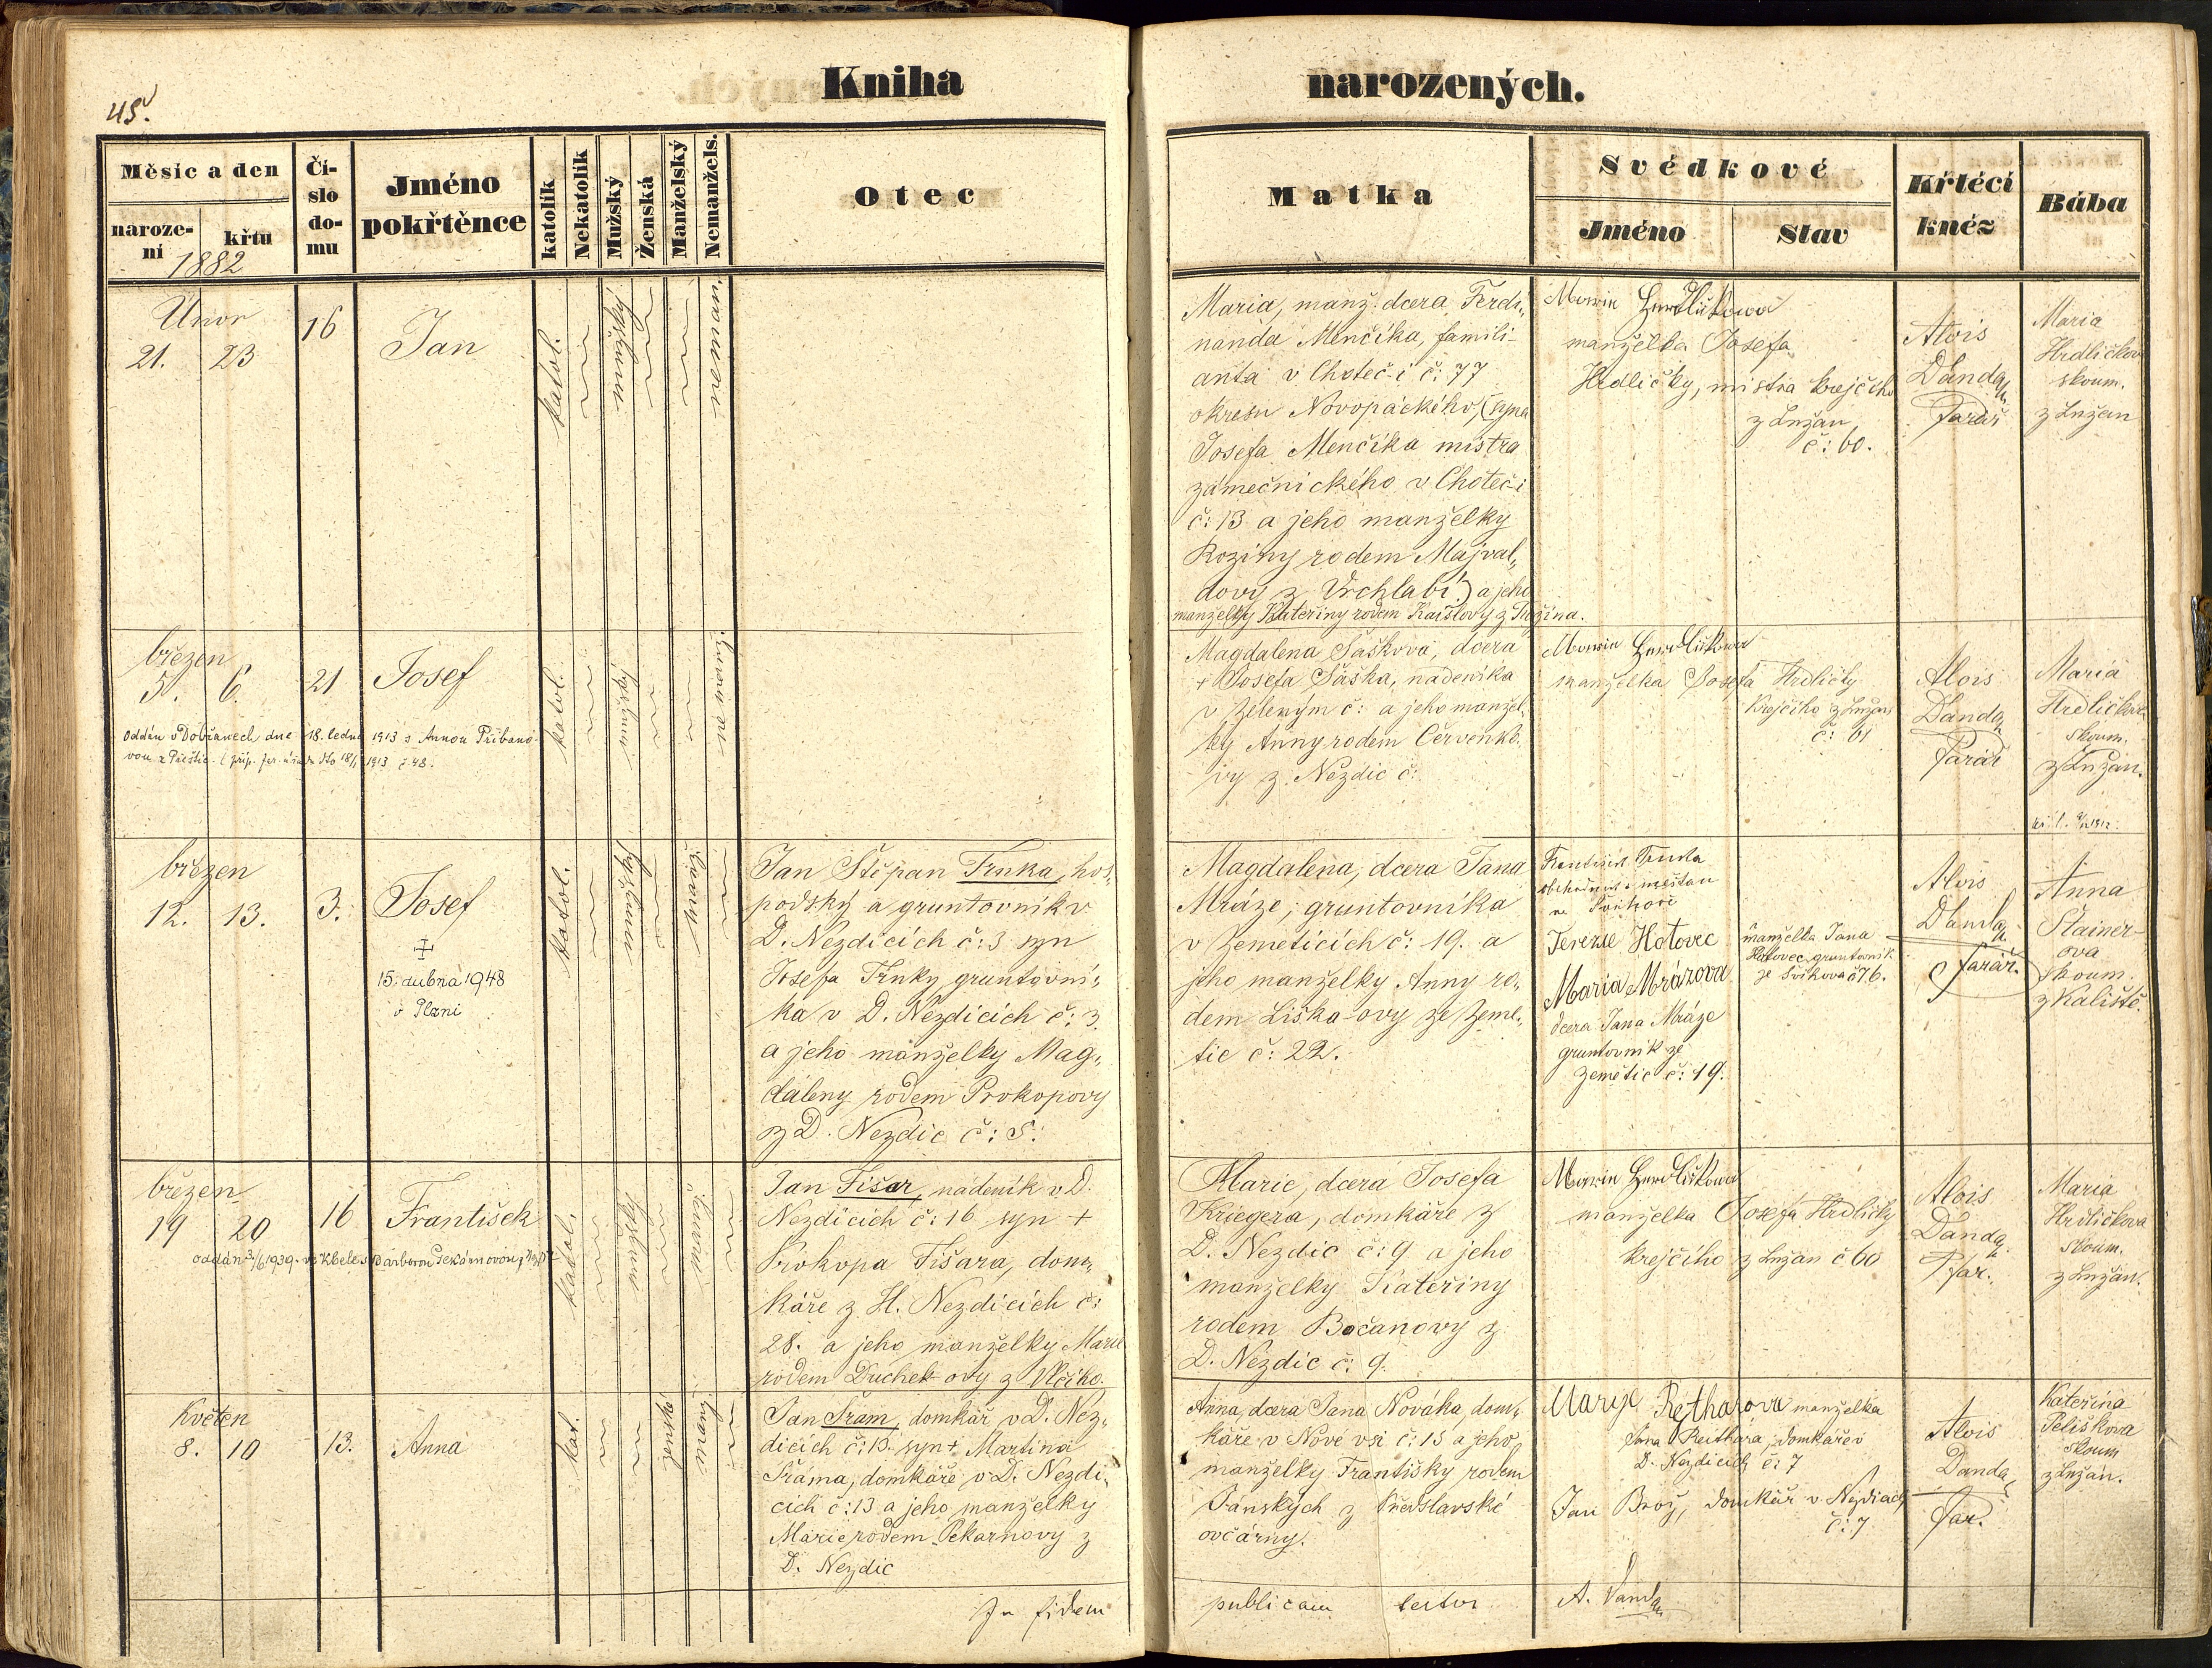 45.
Kniha narozených.
Měsíc a den
naroze-
ní
křtu
1882
Čí-
slo
do-
mu
Jméno
pokřtěnce
katolík
Nekatolík
Mužský
Ženská
Manželský
Nemanžels.
Otec
Matka
Svědkové
Jméno
Stav
Křtécí
kněz
Bába
Únor
21. 23
16
Jan
katol.
Maria, manž. dcera Ferdi„
nanda Menčíka, famili-
anta v Choteč-i č: 77
okresu Novopackého, (syna
Josefa Menčíka mistra
zámečnického v Choteč-i
č: 13 a jeho manželky
Roziny rodem Majval„
dovy z Vrchlabí) a jeho
manželky Kateřiny rodem
manželka Josefa
Hrdličky, mistra krejčího
z Lužan
č: 60.
Alois
Danda
Farář
Maria
Hrdličkov
skoum.
z Lužan
březen
5. 6.
21
Josef
katol.
oddán v Dobřanech dne 18. ledna 1913 s Annou Přibáno-
vou z Přeštic
1913 č. 48.
Magdalena Sašková, dcera
+ Josefa Sáška, nadeníka
v Zeleným č: a jeho manžel„
ky Anny rodem Červenko„
vy z Nezdic č:
manželka Josefa Hrdličky
Krejčího z Lužan
č: 61
Alois
Danda
Farář
Maria
Hrdličkova
skoum.
z Lužan.
březen
12. 13.
3.
Josef
15. dubna 1948
v Plzni
katol.
Jan Štěpan Trnka, hos„
podský a gruntovník v
D. Nezdicích č: 3 syn
Josefa Trnky gruntovní„
ka v D. Nezdicích č: 3.
a jeho manželky Mag„
daleny rodem Prokopovy
z D. Nezdic č: 5.
Magdalena, dcera Jana
Mráze, gruntovníka
v Zemeticích č: 19. a
jeho manželky Anny ro„
dem Liška-ovy ze Zeme„
tic č: 22.
František Trnka
obchodník a měšťan
Terezie Hotovec
manželka Jana
Hotovec gruntovník
ze Svihova č 76.
Maria Mrázova
dcera Jana Mráze
gruntovník ze
Zemětic č: 19.
Alois
Danda
farář.
Anna
Stainer-
ova
skoum.
z Kaliště.
březen
19 20
16
František
katol.
oddán 3/6 1939
Jan Fišar, nádeník v D.
Nezdicích č: 16 syn +
Prokopa Fišara, dom„
káře z H. Nezdicích č:
28. a jeho manželky Marie
rodem Duchek-ovy z Vlčího.
Marie, dcera Josefa
Kriegera, domkáře z
D. Nezdic č: 9 a jeho
manželky Kateřiny
rodem Bočanovy z
D. Nezdic č: 9.
manželka Josefa Hrdličky
krejčího z Lužan č 60
Alois
Danda
Far.
Maria
Hrdličkova
skoum.
z Lužan.
Květen
8. 10
13.
Anna
kat.
Jan Šram, domkář v D. Nez„
dicích č: 13. syn + Martina
Šráma, domkáře, v D. Nezdi„
cích č: 13 a jeho manželky
Marie rodem Pekarnovy z
D. Nezdic
Anna, dcera Jana Nováka, dom„
káře v Nové vsi č: 13 a jeho
manželky Františky rodem
Pánských z Předslavské
ovčárny.
Marye Rejtharova manželka
Jana Reithara, domkáře v
D. Nezdicích č: 7
Jan Brož, domkář v Nezdicích
č: 7
Alois
Danda
Far.
Kateřina
Pelíškova
skoum
z Lužan.
In fidem publicam testor A. Danda